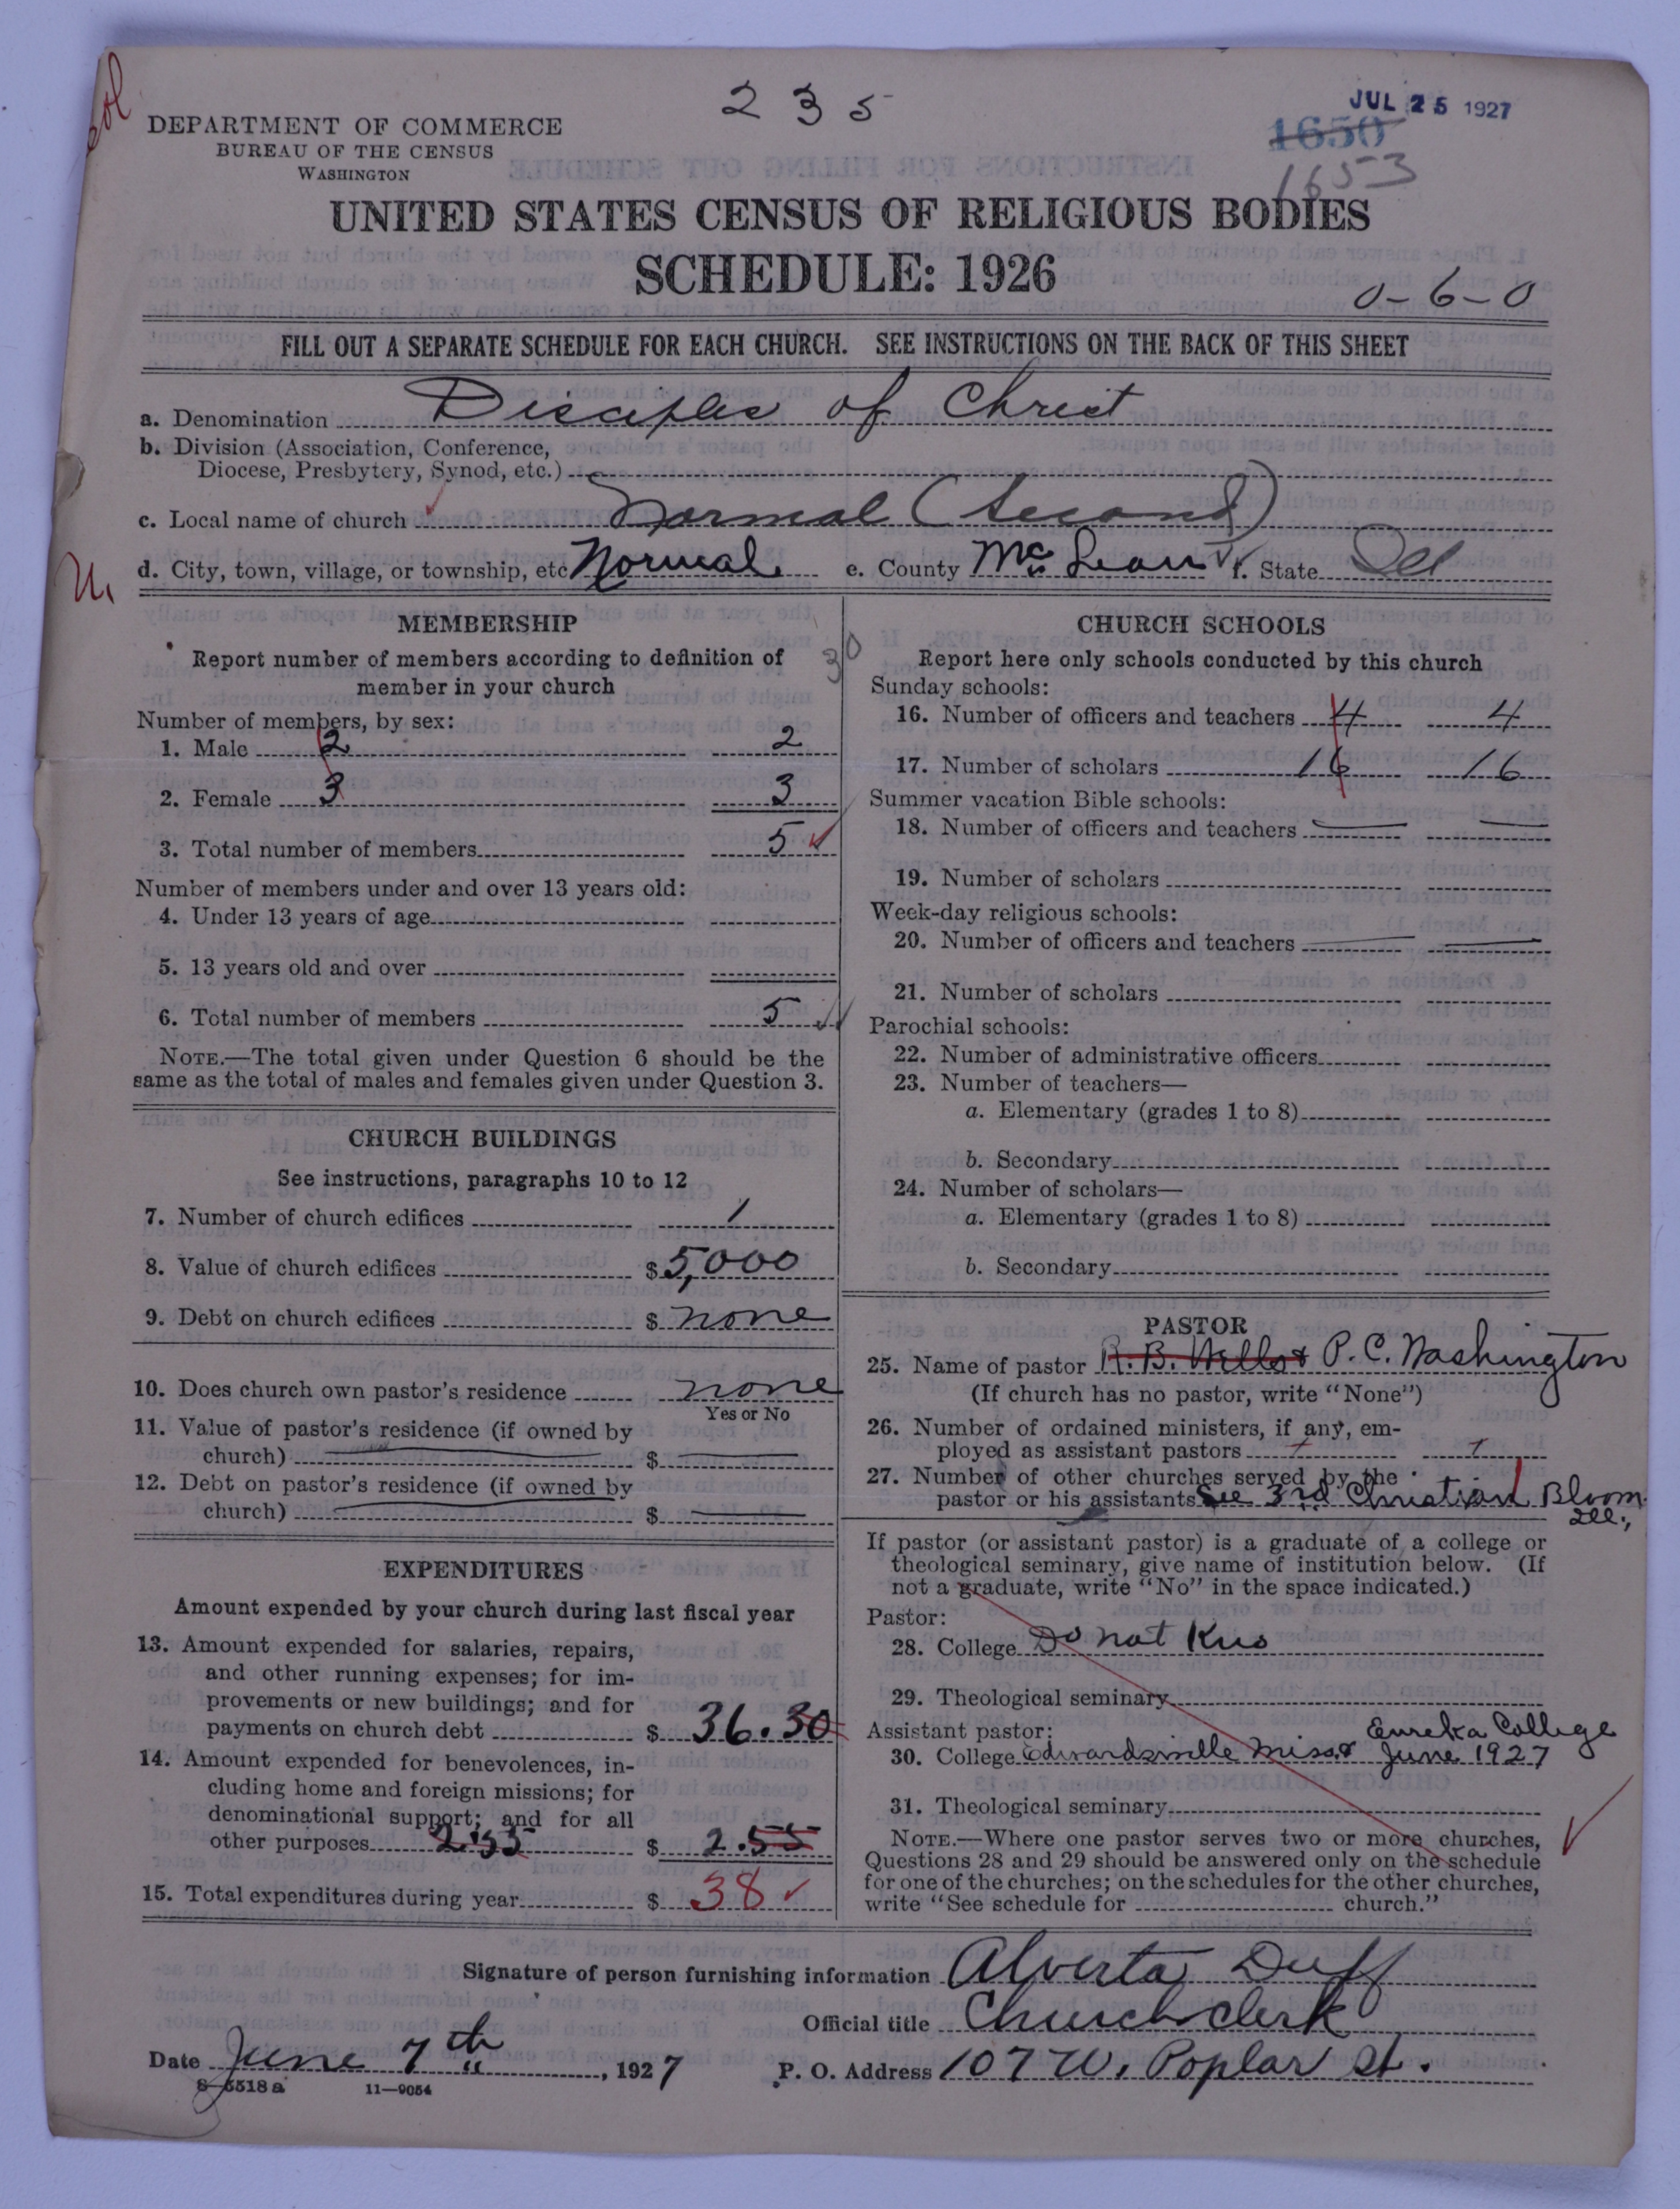 col
2 3 5
JUL 25 1927
1650
1653
DEPARTMENT OF COMMERCE
BUREAU OF THE CENSUS
WASHINGTON
UNITED STATES CENSUS OF RELIGIOUS BODIES
SCHEDULE: 1926
0-6-0
FILL OUT A SEPARATE SCHEDULE FOR EACH CHURCH. SEE INSTRUCTIONS ON THE BACK OF THIS SHEET
a. Denomination Disciples of Christ
b. Division (Association, Conference,
Diocese, Presbytery, Synod, etc.)
c. Local name of church Normal (Second)
d. City, town, village, or township, etc Normal e. County McLean f. State Ill
MEMBERSHIP
Report number of members according to definition of
member in your church
Number of members, by sex:
1. Male 2 2
2. Female 3 3
3. Total number of members 5
Number of members under and over 13 years old:
4. Under 13 years of age
5. 13 years old and over
6. Total number of members 5
NOTE.—The total given under Question 6 should be the
same as the total of males and females given under Question 3.
CHURCH BUILDINGS
See instructions, paragraphs 10 to 12
7. Number of church edifices 1
8. Value of church edifices $ 5,000
9. Debt on church edifices $ none
10. Does church own pastor's residence none
Yes or No
11. Value of pastor's residence (if owned by
church) $
12. Debt on pastor's residence (if owned by
church) $
EXPENDITURES
Amount expended by your church during last fiscal year
13. Amount expended for salaries, repairs,
and other running expenses; for im-
provements or new buildings; and for
payments on church debt $ 36.30
14. Amount expended for benevolences, in-
cluding home and foreign missions; for
denominational support; and for all
other purposes 2.55 $ 2.55
15. Total expenditures during year $ 38
30
CHURCH SCHOOLS
Report here only schools conducted by this church
Sunday schools:
16. Number of officers and teachers 4 4
17. Number of scholars 16 16
Summer vacation Bible schools:
18. Number of officers and teachers
19. Number of scholars
Week-day religious schools:
20. Number of officers and teachers
21. Number of scholars
Parochial schools:
22. Number of administrative officers
23. Number of teachers—
a. Elementary (grades 1 to 8)
b. Secondary
24. Number of scholars—
a. Elementary (grades 1 to 8)
b. Secondary
PASTOR
25. Name of pastor R. B. Wells & P. C. Washington
(If church has no pastor, write "None")
26. Number of ordained ministers, if any, em-
ployed as assistant pastors 1 1
27. Number of other churches served by the
pastor or his assistants See 3rd Christian Bloom.
Ill.,
If pastor (or assistant pastor) is a graduate of a college or
theological seminary, give name of institution below. (If
not a graduate, write "No" in the space indicated.)
Pastor:
28. College Do not Kno
29. Theological seminary
Assistant pastor: Eureka College
30. College Edwardsville Miss. & June 1927
31. Theological seminary
NOTE.—Where one pastor serves two or more churches,
Questions 28 and 29 should be answered only on the schedule
for one of the churches; on the schedules for the other churches,
write "See schedule for church."
Signature of person furnishing information Alverta Duff
Official title Church clerk
Date June 7th, 1927 P. O. Address 107 W. Poplar St.
8-5518a 11—9054